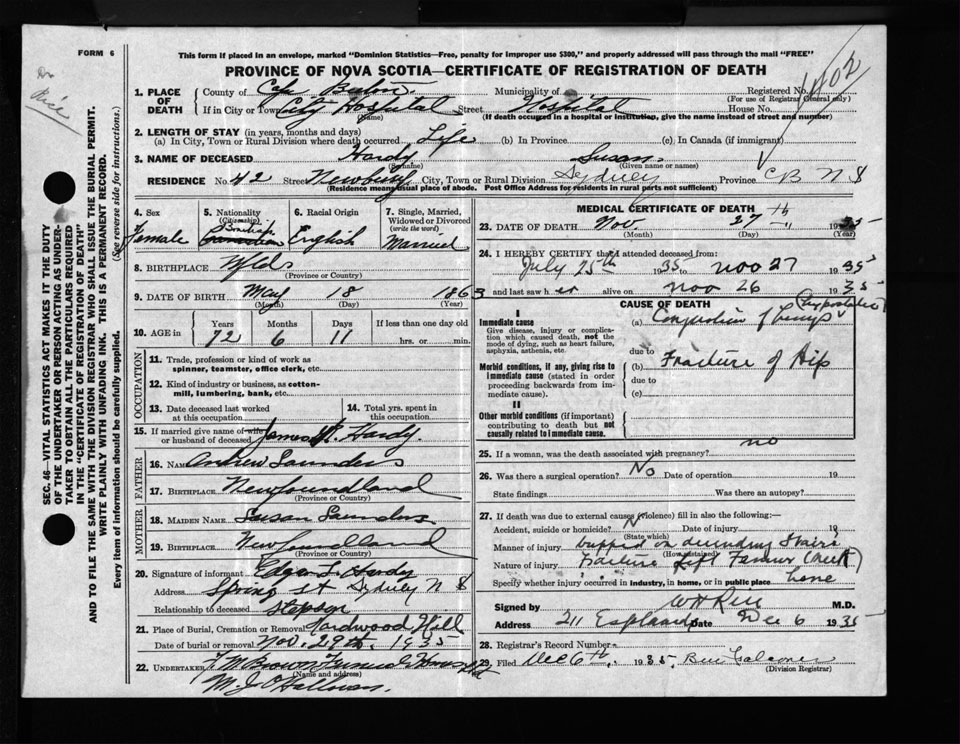 FORM 6
This form if placed in an envelope, marked "Dominion Statistics—Free, penalty for improper use $300," and properly addressed will pass through the mail "FREE"
PROVINCE OF NOVA SCOTIA—CERTIFICATE OF REGISTRATION OF DEATH
Dr Rice
SEC. 46—VITAL STATISTICS ACT MAKES IT THE DUTY
OF THE UNDERTAKER OR PERSON ACTING AS UNDER-
TAKER TO OBTAIN ALL THE PARTICULARS REQUIRED
IN THE "CERTIFICATE OF REGISTRATION OF DEATH"
AND TO FILE THE SAME WITH THE DIVISION REGISTRAR WHO SHALL ISSUE THE BURIAL PERMIT.
WRITE PLAINLY WITH UNFADING INK. THIS IS A PERMANENT RECORD.
Every item of information should be carefully supplied. (See reverse side for instructions.)
1. PLACE OF DEATH
County of Cape Breton Municipality of Registered No. 1402
(For use of Registrar General only)
If in City or Town City Hospital Street Hospital House No.
(Name) (If death occurred in a hospital or institution, give the name instead of street and number)
2. LENGTH OF STAY (in years, months and days)
(a) In City, Town or Rural Division where death occurred Life (b) In Province (c) In Canada (if immigrant)
3. NAME OF DECEASED Hardy Susan
(Surname) (Given name or names)
RESIDENCE No. 42 Street Newbury City, Town or Rural Division Sydney Province C B N S
(Residence means usual place of abode. Post Office Address for residents in rural parts not sufficient)
4. Sex
Female
5. Nationality
(Citizenship)
British
Canadian
6. Racial Origin
English
7. Single, Married, Widowed or Divorced
(write the word)
Married
8. BIRTHPLACE Nfld
(Province or Country)
9. DATE OF BIRTH May 18 1863
(Month) (Day) (Year)
10. AGE in Years Months Days If less than one day old
72 6 11 hrs. or min.
OCCUPATION
11. Trade, profession or kind of work as
spinner, teamster, office clerk, etc.
12. Kind of industry or business, as cotton-
mill, lumbering, bank, etc.
13. Date deceased last worked at this occupation
14. Total yrs. spent in this occupation
15. If married give name of wife or husband of deceased James R. Hardy.
FATHER
16. NAME Andrew Saunders
17. BIRTHPLACE Newfoundland
(Province or Country)
MOTHER
18. MAIDEN NAME Susan Saunders
19. BIRTHPLACE Newfoundland
(Province or Country)
20. Signature of informant Edgar S. Hardy
Address Spring St Sydney N S
Relationship to deceased stepson
21. Place of Burial, Cremation or Removal Hardwood Hill
Date of burial or removal Nov. 29th. 1935
22. UNDERTAKER T M Brown Funeral Home
(Name and address)
M. J. O'Halloran.
MEDICAL CERTIFICATE OF DEATH
23. DATE OF DEATH Nov. 27th 1935
(Month) (Day) (Year)
24. I HEREBY CERTIFY that I attended deceased from:
July 25th 1935 to Nov 27 1935
and last saw her alive on Nov 26 1935
CAUSE OF DEATH
I
Immediate cause
Give disease, injury or complica-
tion which caused death, not the
mode of dying, such as heart failure,
asphyxia, asthenia, etc.
(a) Congestion of lungs (hypostatic)
due to
Morbid conditions, if any, giving rise to
immediate cause (stated in order
proceeding backwards from im-
mediate cause).
(b) Fracture of Hip
due to
(c)
II
Other morbid conditions (if important)
contributing to death but not
causally related to immediate cause.
25. If a woman, was the death associated with pregnancy? no
26. Was there a surgical operation? No Date of operation 19
State findings Was there an autopsy?
27. If death was due to external causes (violence) fill in also the following:—
Accident, suicide or homicide? Date of injury 19
(State which)
Manner of injury tripped on descending stairs
(How sustained)
Nature of injury Fracture left Femur (neck)
Specify whether injury occurred in industry, in home, or in public place home
Signed by W H Rice M.D.
Address 211 Esplanade Date Dec 6 1935
28. Registrar's Record Number
29. Filed Dec 6th. 1935.
(Division Registrar)